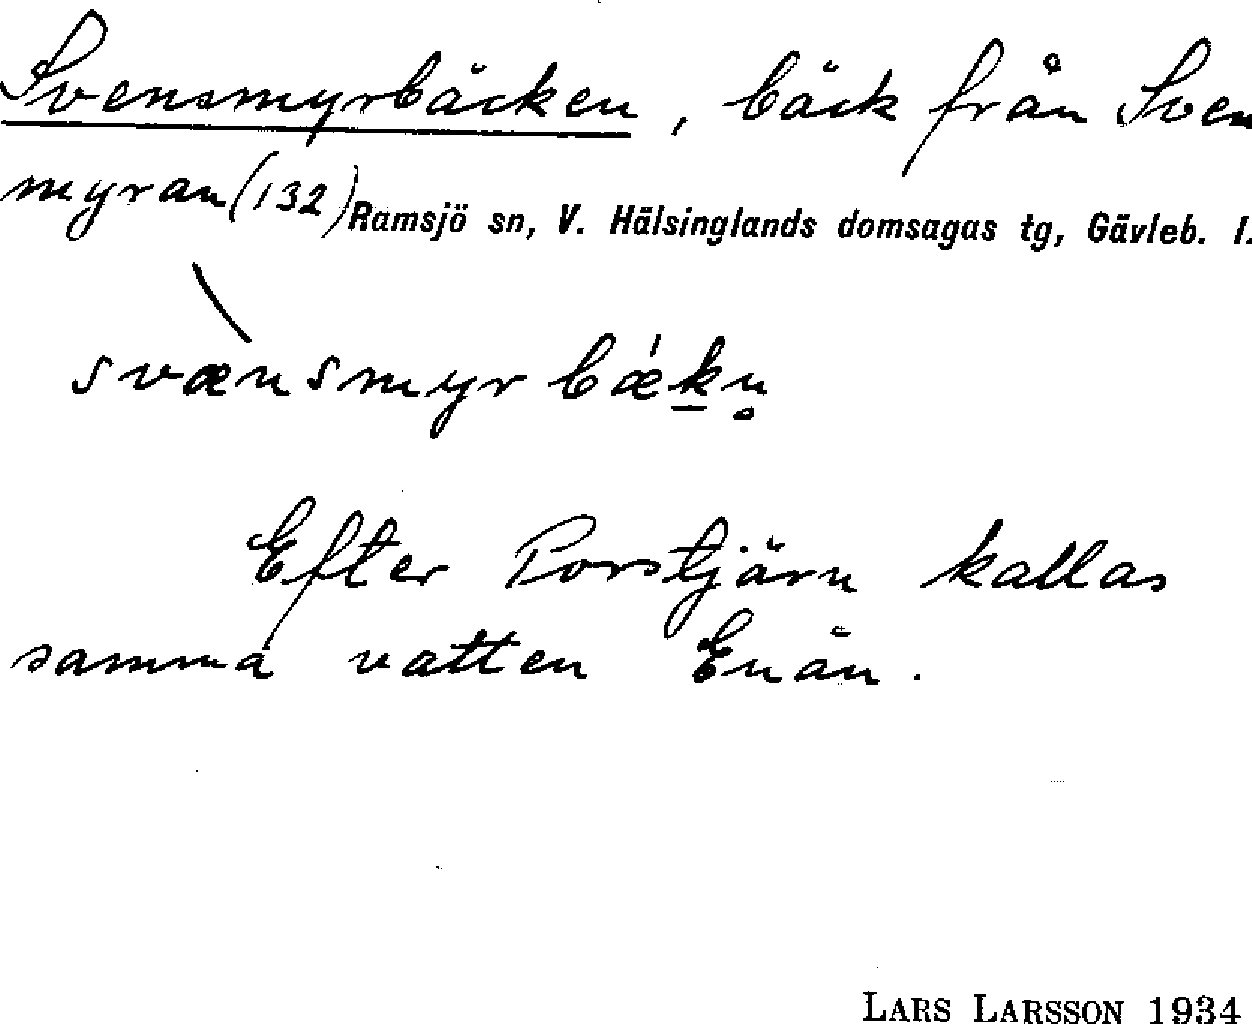 Svensmyrbäcken, bäck från Sven
myran (132) Ramsjö sn, V. Hälsinglands domsagas tg, Gävleb. l.
svænsmyrbǽk̲n̥
Efter Porstjärn kallas
samma vatten Enån.
LARS LARSSON 1934